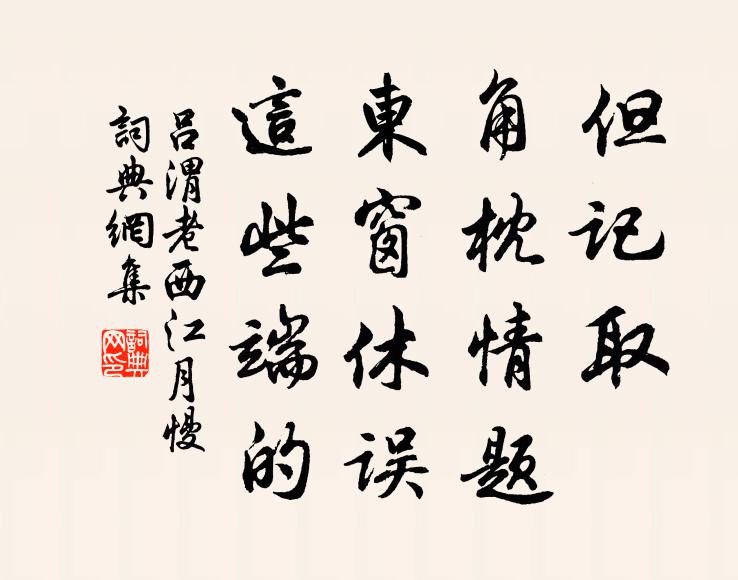 但记取
角枕情题
東窗休误
這些端的
吕渭老西江月慢
詞典網集
詞典網印